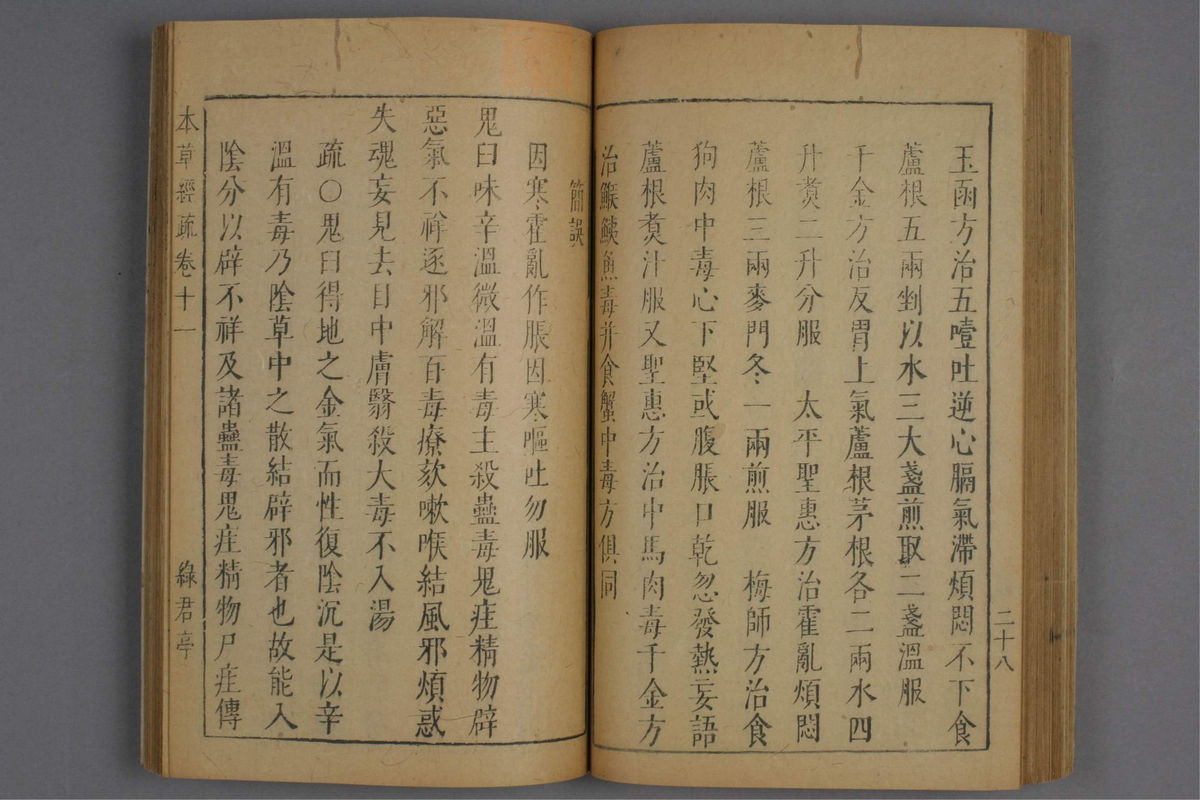 二十八
玉函方治五噎吐逆心膈氣滯煩悶不下食
蘆根五兩剉以水三大盞煎取二盞溫服
千金方治反胃上氣蘆根茅根各二兩水四
升煮二升分服　太平聖惠方治霍亂煩悶
蘆根三兩麥門冬一兩煎服　梅師方治食
狗肉中毒心下堅或腹脹口乾忽發熱妄語
蘆根煮汁服又聖惠方治中馬肉毒千金方
治鯸鮧魚毒并食蟹中毒方俱同
簡誤
因寒霍亂作脹因寒嘔吐勿服
鬼臼味辛溫微溫有毒主殺蠱毒鬼疰精物辟
惡氣不祥逐邪解百毒療欬嗽喉結風邪煩惑
失魂妄見去目中膚翳殺大毒不入湯
疏〇鬼臼得地之金氣而性復陰沉是以辛
溫有毒乃陰草中之散結辟邪者也故能入
陰分以辟不祥及諸蠱毒鬼疰精物尸疰傳
本草經疏卷十一
綠君亭